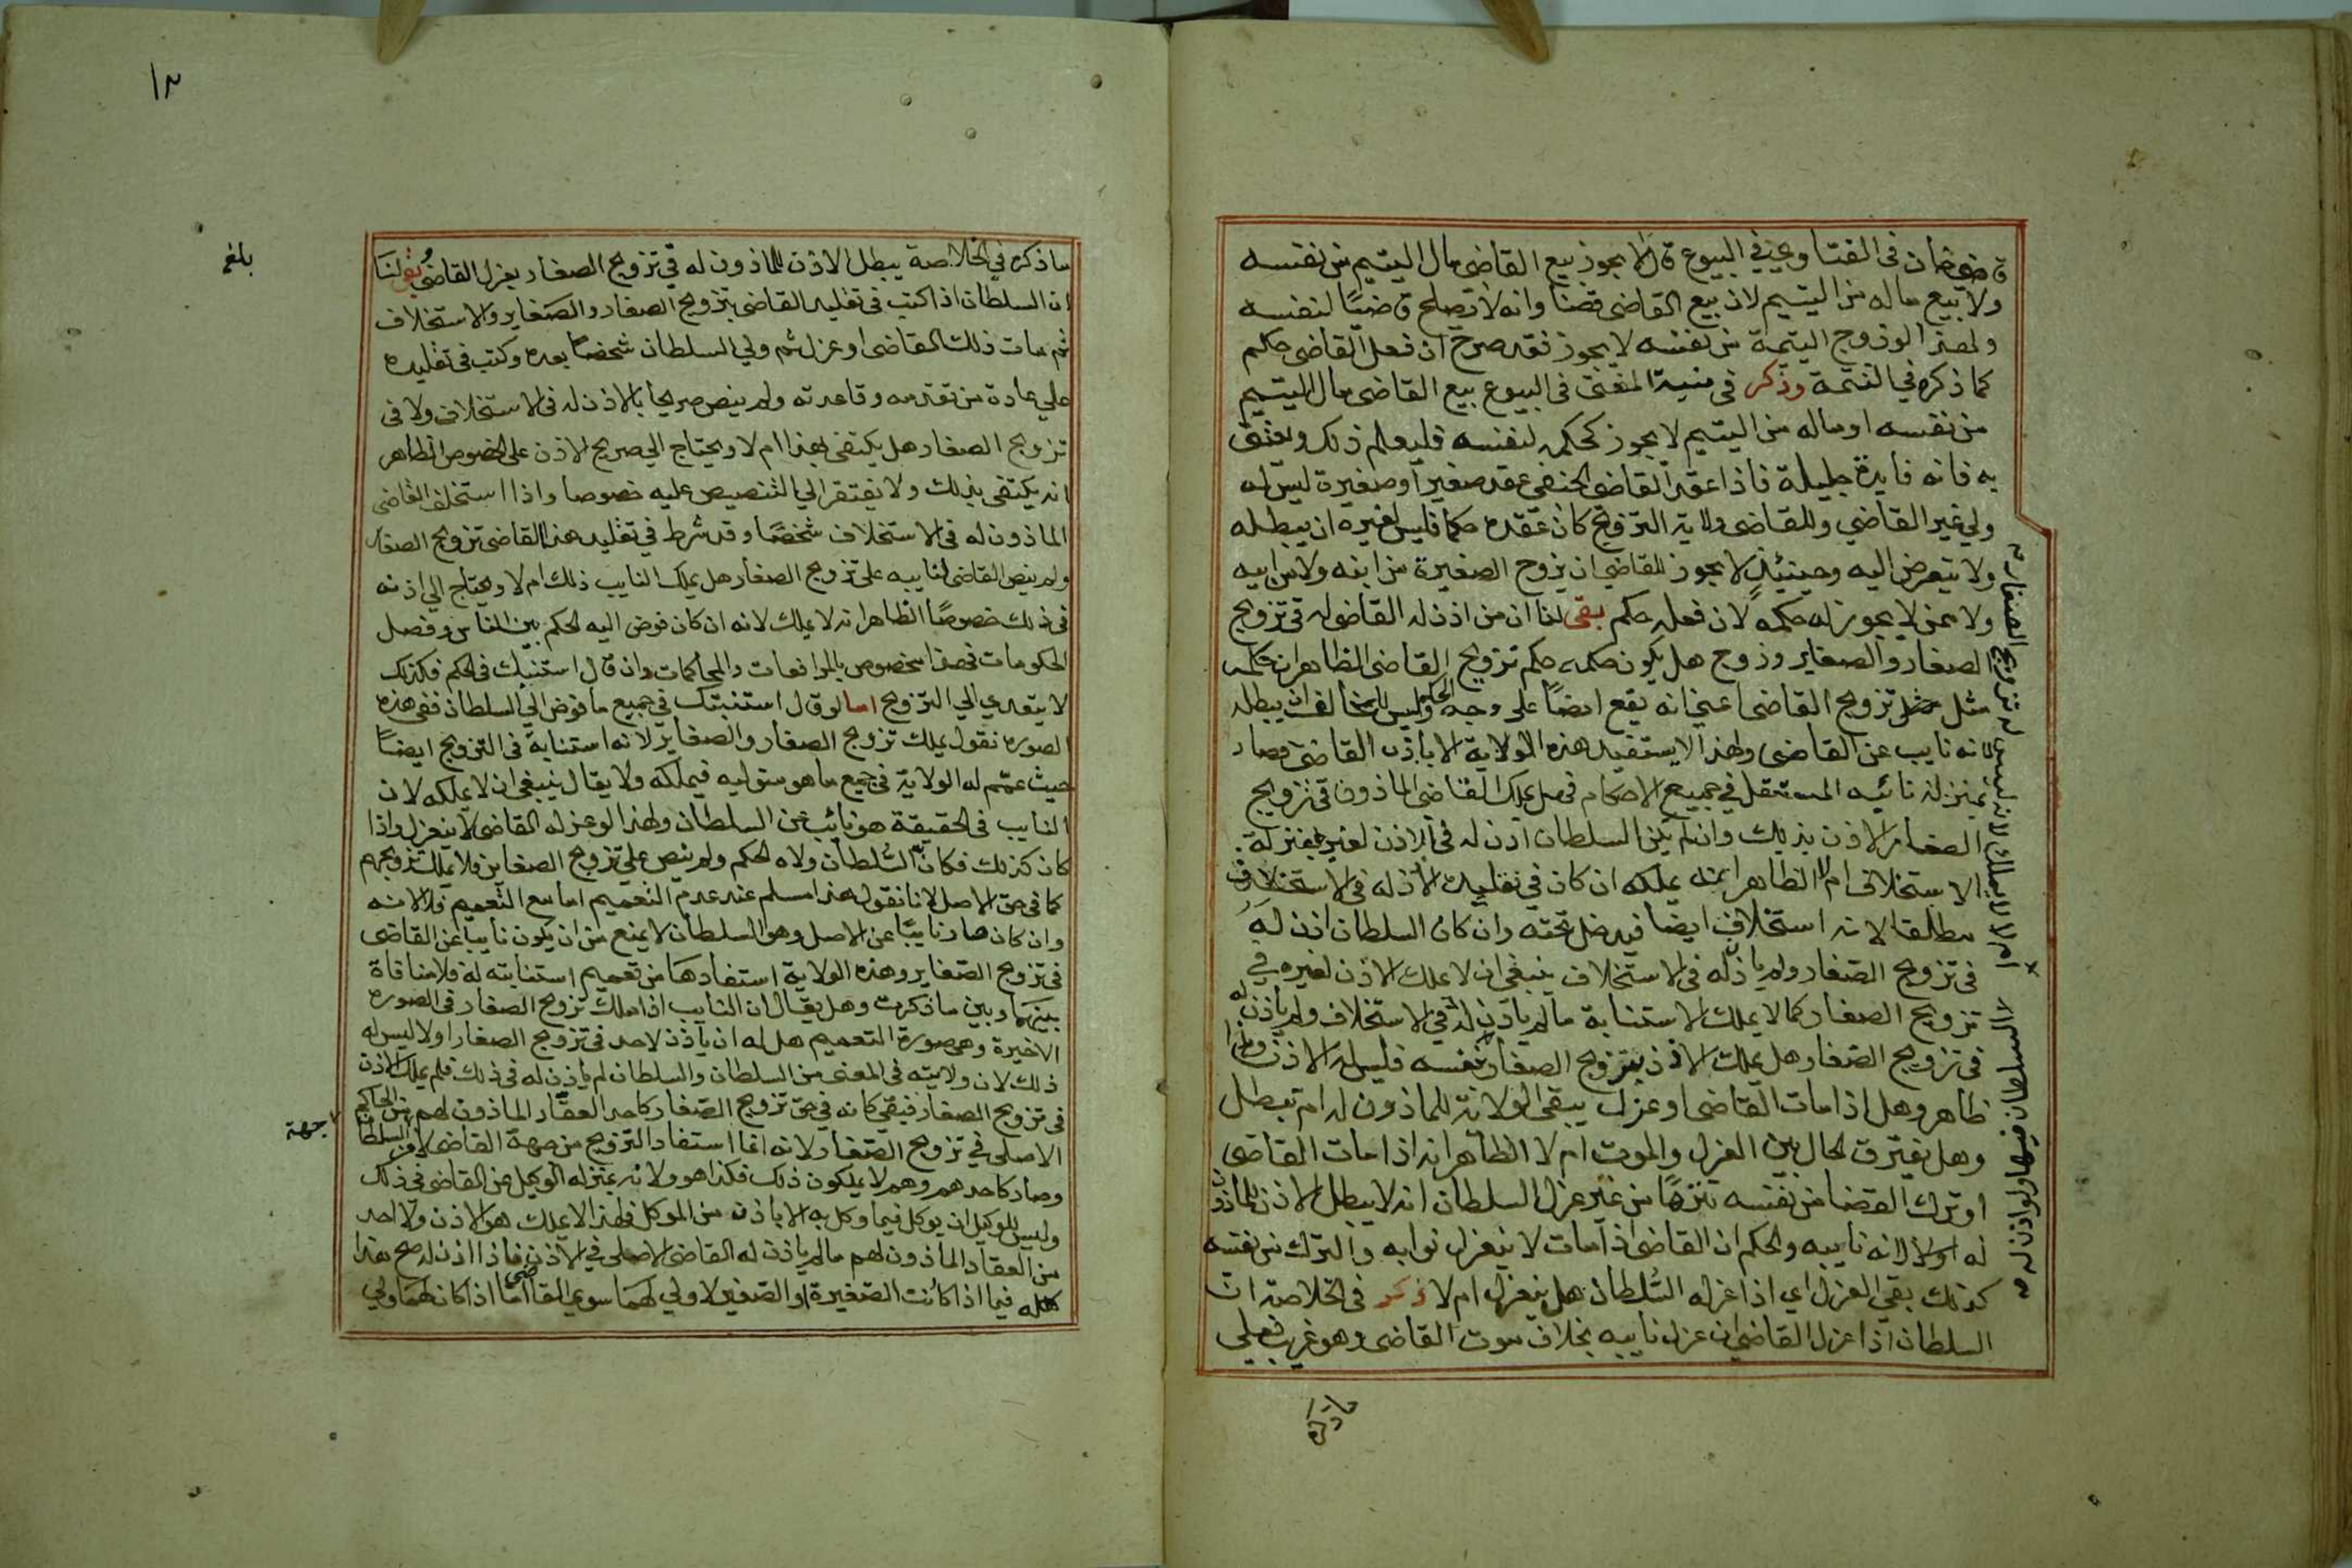 قاضي خان في الفتاوي في البيوع قال لا يجوز بيع القاضي مال اليتيم من نفسه
ولا بيع ماله من اليتيم لان بيع القاضي قضا وانه لا يصلح قاضيًا لنفسه
ولهذا لو زوج اليتيمة من نفسه لا يجوز فقد صرح ان فعل القاضي حكم
كما ذكره في التتمة وذكر في منية المفتي في البيوع بيع القاضي مال اليتيم
من نفسه او ماله من اليتيم لا يجوز كحكمه لنفسه فليعلم ذلك
به فانه فايدة جليلة فاذا عقد القاضي الحنفي عقد صغير او صغيرة ليس له
ولي غير القاضي وللقاضي ولاية التزويج كان عقده حكما فليس لغيره ان يبطله
ولا يتعرض اليه وحينئذ لا يجوز للقاضي ان يزوج الصغيرة من ابنه ولا من ابيه
ولا ممن لا يجوز له حكمه لان فعله حكم بقي لنا ان من اذن له القاضي له في تزويج
الصغار والصغاير وزوج هل يكون حكمه حكم تزويج القاضي الظاهر ان حكمه
مثل تزويج القاضي اعني انه يقع ايضًا على وجه الحكم وليس للمخالف ان يبطله
لانه نايب عن القاضي ولهذا لا يستفيد هذه الولاية الا باذن القاضي فصار
بمنزلة نائبه المستقل في جميع الاحكام فهل يملك القاضي الماذون في تزويج
الصغار الاذن بذلك وان لم يكن السلطان اذن له في الاذن لغيره بمنزلة
الاستخلاف ام لا الظاهر انه يملكه ان كان في تقليده الاذن له في الاستخلاف
مطلقا لانه استخلاف ايضا فيدخل تحته وان كان السلطان اذن له
في تزويج الصغار ولم ياذن له في الاستخلاف ينبغي ان لا يملك الاذن لغيره في
تزويج الصغار كما لا يملك الاستنابة ما لم ياذن له في الاستخلاف ولم ياذن له
في تزويج الصغار هل يملك الاذن بتزويج الصغار بنفسه فليس له الاذن وهذا
ظاهر وهل اذا مات القاضي او عزل يبقى الولاية للماذون له ام تبطل
وهل يفترق الحال بين العزل والموت ام لا الظاهر انه اذا مات القاضي
او ترك القضا من نفسه تنزهًا من غير عزل السلطان انه لا يبطل الاذن للماذون
له اولا لانه نايبه والحكم ان القاضي اذا مات لا ينعزل نوابه والترك من نفسه
كذلك بقي العزل اي اذا عزله السُّلطان هل ينعزل ام لا ذكر في الخلاصة ان
السلطان اذا عزل القاضي انعزل نايبه بخلاف موت القاضي وهو غريب فعلي
ماذكره
ماذكره في الخلاصة يبطل الاذن للماذون له في تزويج الصغار بعزل القاضي بقي لنا
ان السلطان اذا كتب في تقليد القاضي بتزويج الصغار والصغاير والاستخلاف
ثم مات ذلك القاضي او عزل ثم ولي السلطان شخصًا بعده وكتب في تقليده
علي عادة من تقدمه وقاعدته ولم ينص صريحا بالاذن له في الاستخلاف ولا في
تزويج الصغار هل يكتفي بهذا ام لا ويحتاج الي صريح الاذن على الخصوص الظاهر
انه يكتفي بذلك ولا يفتقر الي التنصيص عليه خصوصا واذا استخلف القاضي
الماذون له في الاستخلاف شخصًا وقد شرط في تقليد هذا القاضي تزويج الصغار
ولم ينص القاضي لنايبه على تزويج الصغار هل يملك النايب ذلك ام لا ويحتاج الي اذنه
في ذلك خصوصًا الظاهر انه لا يملك لانه ان كان فوض اليه الحكم بين الناس وفصل
الحكومات فهذا مخصوص بالمرافعات والمحاكمات وان قال استنبتك في الحكم فكذلك
لا يتعدي الي التزويج اما لو قال استنبتك في جميع ما فوض الي السلطان ففي هذه
الصورة نقول يملك تزويج الصغار والصغاير لانه استنابة في التزويج ايضًا
حيث عمم له الولاية في جميع ما هو متوليه فيملكه ولا يقال ينبغي ان لا يملكه لان
النايب في الحقيقة هو نايب عن السلطان ولهذا لو عزله القاضي لا ينعزل واذا
كان كذلك فكان السُّلطان ولاه الحكم ولم ينص علي تزويج الصغاير فلا يملك تزويجهم
كما في حق الاصل لانا نقول هذا مسلم عند عدم التعميم اما مع التعميم فلا لانه
وان كان صار نايبًا عن الاصل وهو السلطان لا يمنع من ان يكون نايبا عن القاضي
في تزويج الصغاير وهذه الولاية استفادها من تعميم استنابته له فلا منافاة
بينهما وبين ما ذكرت وهل يقال ان النايب اذا ملك تزويج الصغار في الصورة
الاخيرة وهي صورة التعميم هل له ان ياذن لاحد في تزويج الصغار اولا ليس له
ذلك لان ولايته في المعنى من السلطان والسلطان لم ياذن له في ذلك فلم يملك الاذن
في تزويج الصغار فبقي كانه في حق تزويج الصغار كاحد العقاد الماذون لهم من الحاكم
الاصلي في تزويج الصغار لانه انما استفاد التزويج من جهة القاضي لا من السلطان
جهة
وصار كاحدهم وهم لا يملكون ذلك فكذا هو ولانه بمنزلة الوكيل عن القاضي في ذلك
وليس للوكيل ان يوكل فيما وكل به الا باذن من الموكل فلهذا لا يملك هو الاذن ولا احد
من العقاد الماذون لهم ما لم ياذن له القاضي الاصلي في الاذن فاذا اذن له صح هذا
كله فيما اذا كانت الصغيرة او الصغير لا ولي لهما سوي القاضي اما اذا كان لهما ولي
بلغ